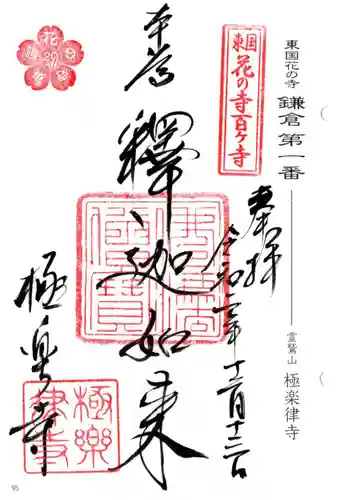 東国花の寺 鎌倉第一番
霊鷲山 極楽律寺
東国
花の寺百ヶ寺
奉拝
令和二年十二月十三日
本尊
釋迦如来
極楽寺
極樂
律寺
95